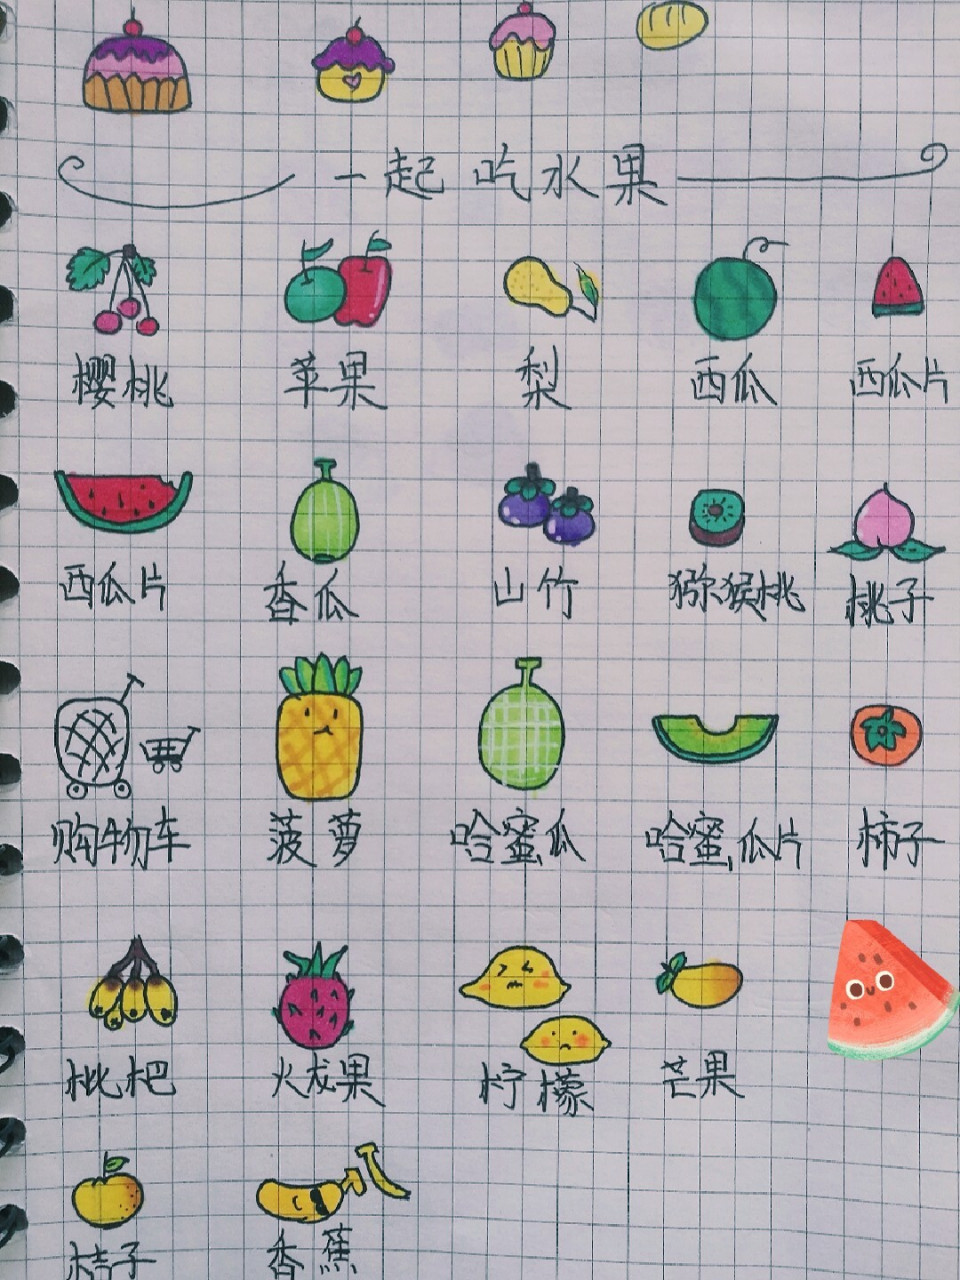 一起吃水果
樱桃 苹果 梨 西瓜 西瓜片
西瓜片 香瓜 山竹 猕猴桃 桃子
购物车 菠萝 哈蜜瓜 哈蜜瓜片 柿子
枇杷 火龙果 柠檬 芒果
桔子 香蕉